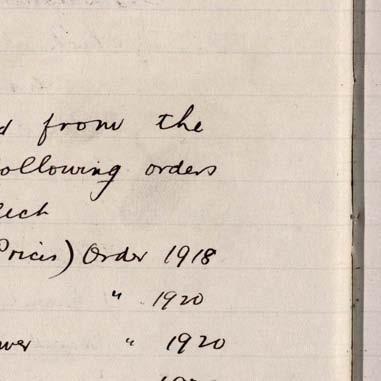 d from the
ollowing orders
Prices) Order 1918
" 1920
wer " 1920